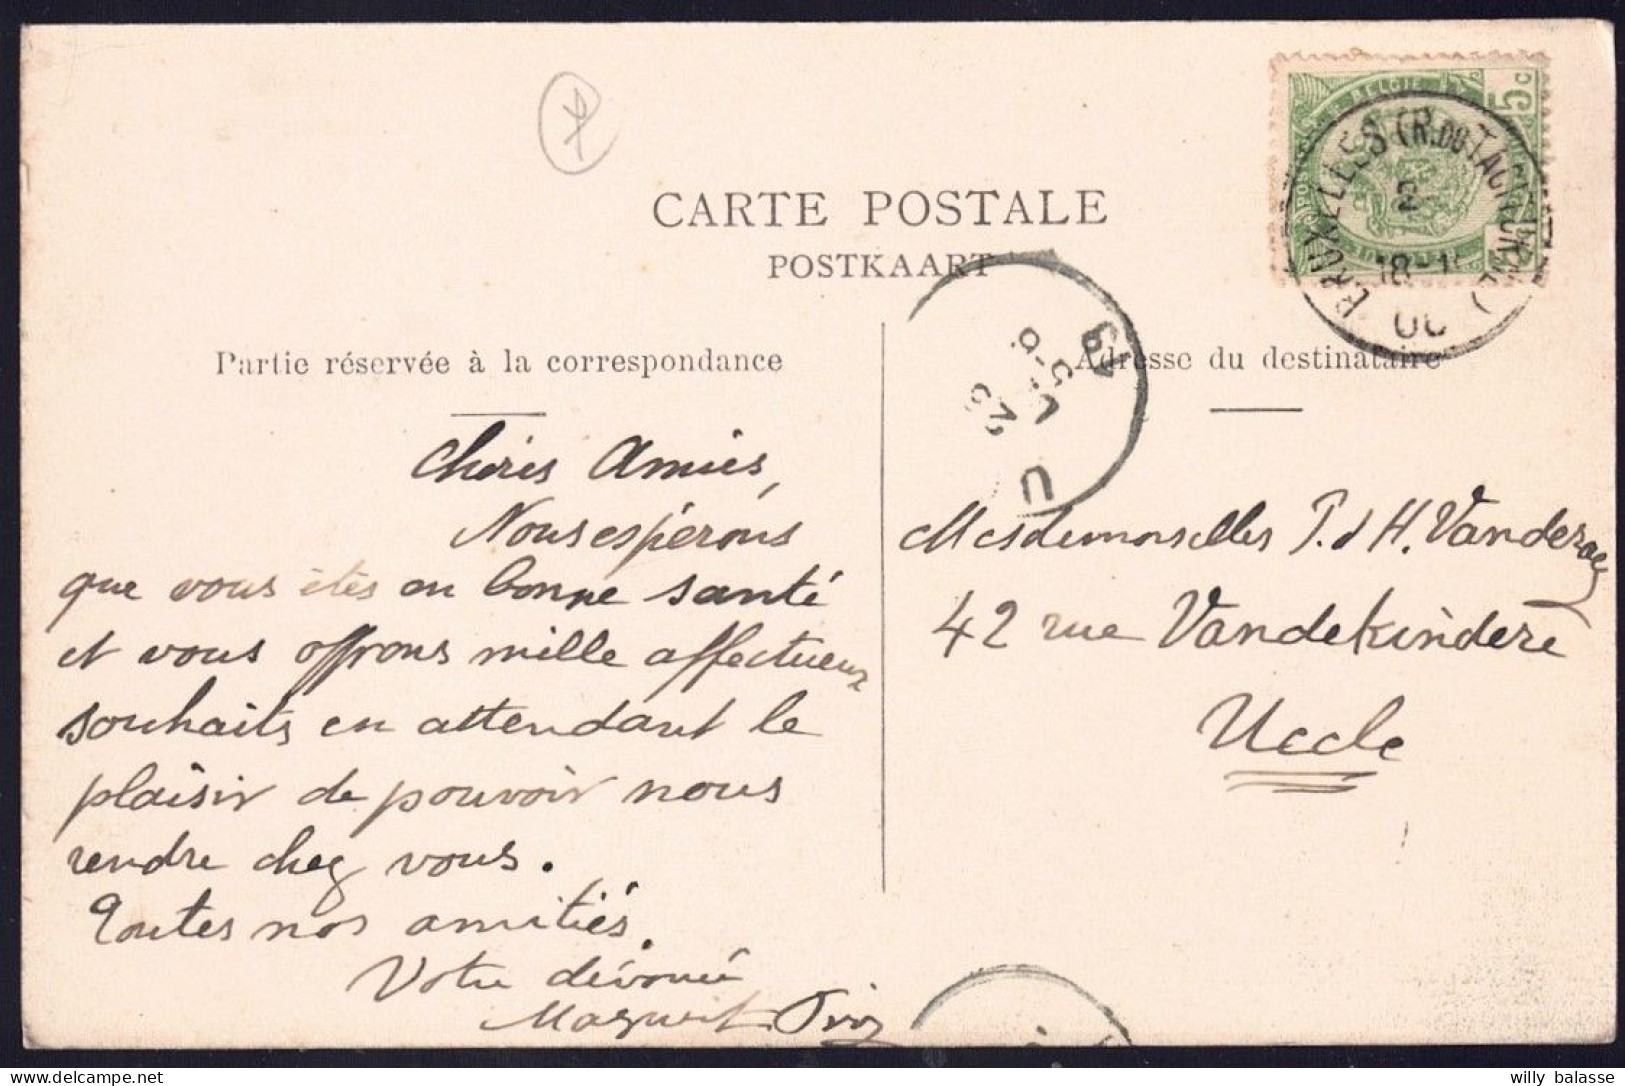 CARTE POSTALE
POSTKAART
Partie réservée à la correspondance
Adresse du destinataire
BELGIE
5 c
BRUXELLES (R. DU TACITURNE)
2
Chères Amies,
Nous espérons
que vous êtes en bonne santé
et vous offrons mille affectueux
souhaits en attendant le
plaisir de pouvoir nous
rendre chez vous.
Toutes nos amitiés.
Votre dévouée
Mesdemoiselles P. d H. Vanderaey
42 rue Vandekindere
Uccle
willy balasse